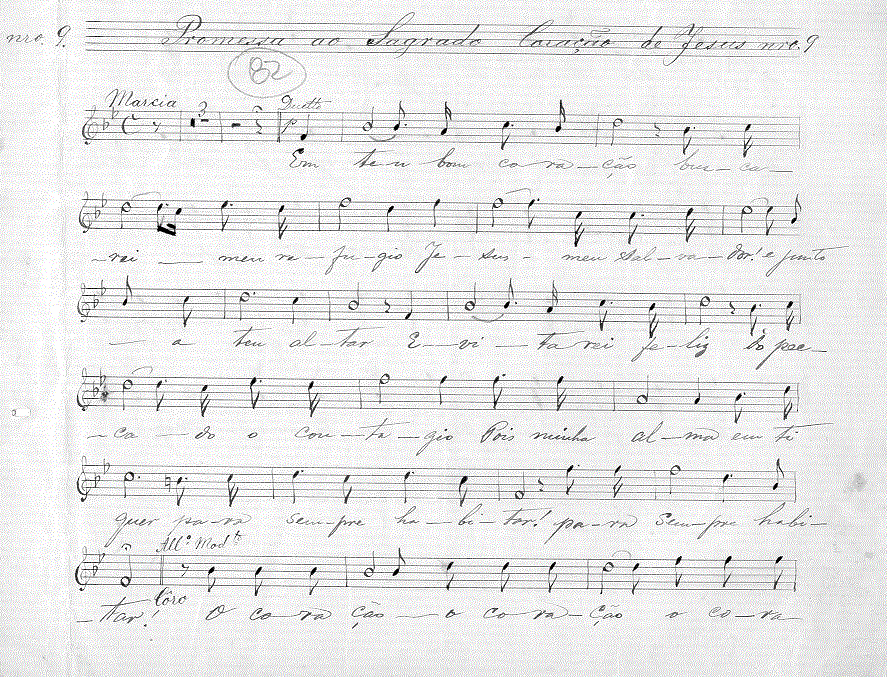 nro. 9. Promessa ao Sagrado Coração de Jesus nro. 9
82
Marcia 3 Duetto
Em teu bom co-ra-ção bus-ca-
-rei — meu re-fu-gio Je-sus- meu Sal-va-dor! e junto
- a teu al-tar E-vi-tarei fe-liz do pec-
-ca-do o con-ta-gio Pois minha al-ma em ti
quer pa-ra sem-pre ha-bi-tar! pa-ra sem-pre habi-
All.º Mod.to
-tar! Côro O co-ra ção-o co-ra-ção o co-ra